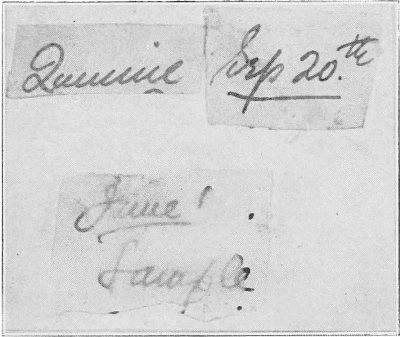 Quinine Sep 20.th
June
Sample